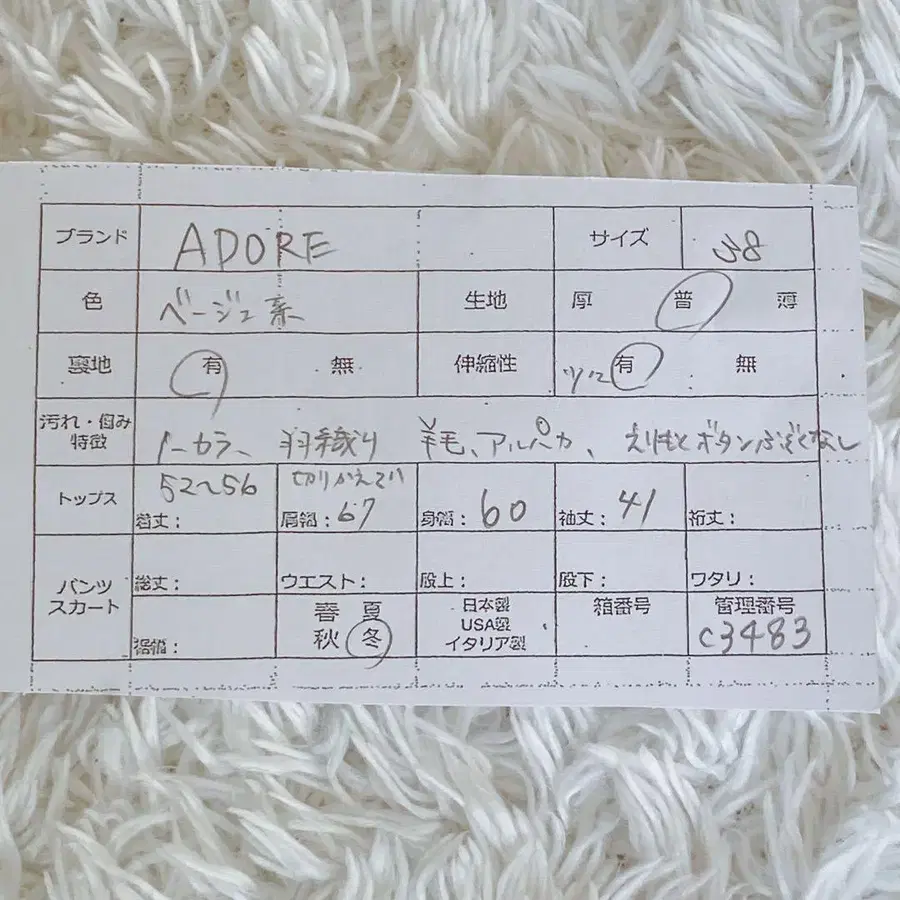 ブランド ADORE サイズ 38
色 ベージュ系 生地 厚 普 薄
裏地 有 無 伸縮性 有 無
汚れ・傷み 特徴 ノーカラー、羽織り 羊毛、アルパカ、えりもとボタンふぞくなし
切りかえて
トップス 着丈: 52~56 肩幅: 67 身幅: 60 袖丈: 41 裄丈:
パンツ スカート 総丈: ウエスト: 股上: 股下: ワタリ:
裾幅: 春 夏 秋 冬 日本製 USA製 イタリア製 箱番号 管理番号 C3483